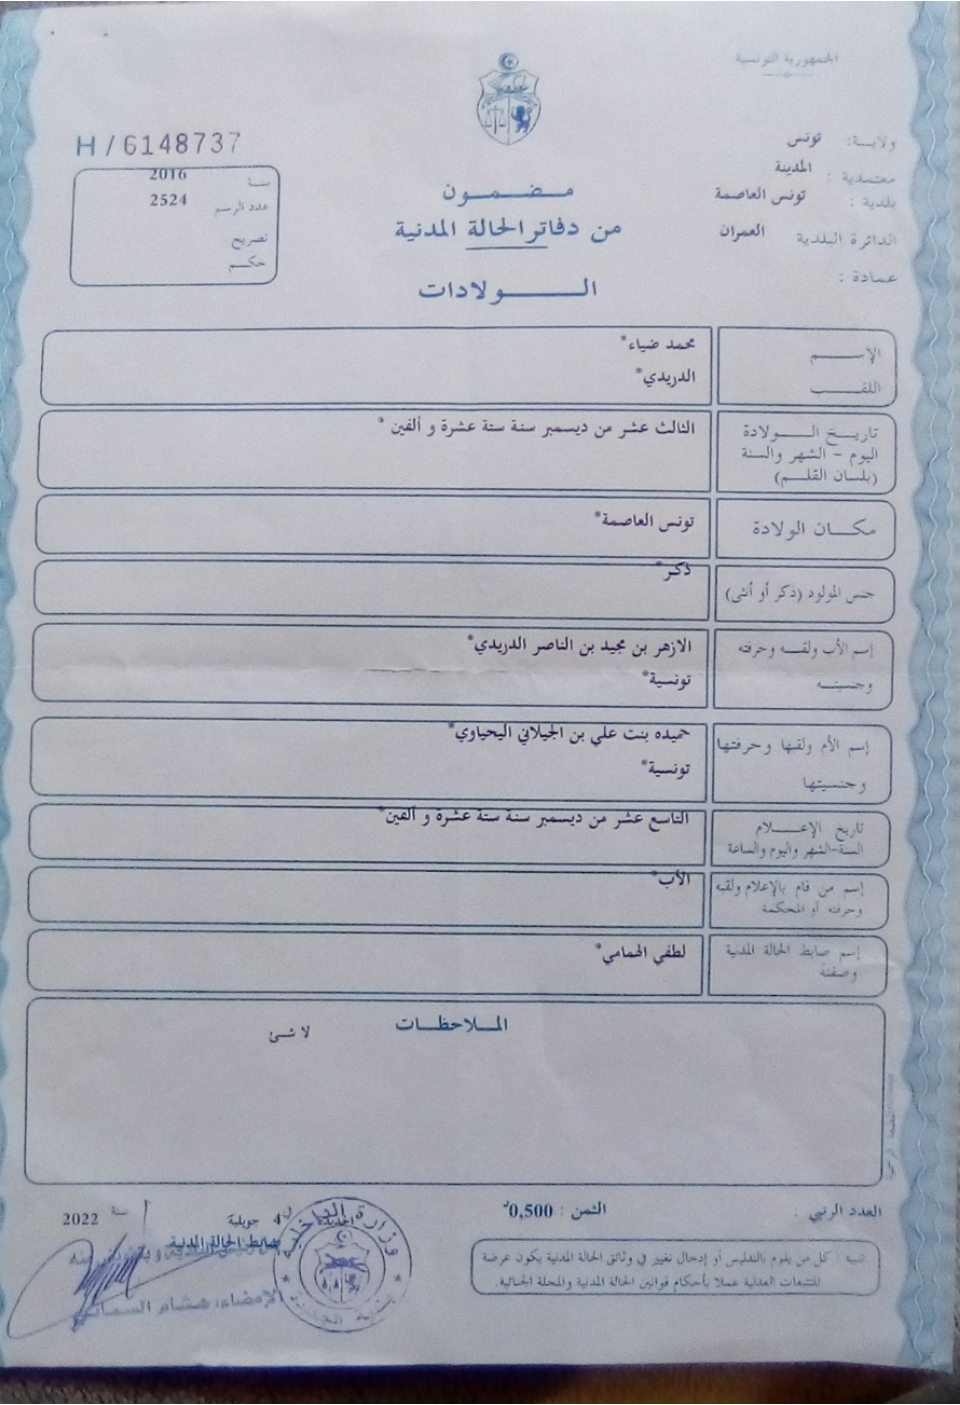 الجمهورية التونسية
ولاية: تونس
معتمدية : المدينة
بلدية : تونس العاصمة
الدائرة البلدية العمران
عمادة :
H/6148737
سنة 2016
عدد الرسم 2524
تصريح
حكم
مضمون
من دفاتر الحالة المدنية
الولادات
الإسم محمد ضياء*
اللقب الدريدي*
تاريخ الولادة
اليوم - الشهر والسنة
(بلسان القلم)
الثالث عشر من ديسمبر سنة ستة عشرة و ألفين *
مكان الولادة تونس العاصمة*
جنس المولود (ذكر أو أنثى) ذكر*
إسم الأب ولقبه وحرفته الازهر بن مجيد بن الناصر الدريدي*
وجنسيته تونسية*
إسم الأم ولقبها وحرفتها حميده بنت علي بن الجيلاني اليحياوي*
وجنسيتها تونسية*
تاريخ الإعلام
السنة-الشهر واليوم والساعة
التاسع عشر من ديسمبر سنة ستة عشرة و ألفين*
إسم من قام بالإعلام ولقبه
وحرفته أو المحكمة
الأب*
إسم ضابط الحالة المدنية
وصفته
لطفي الهمامي*
الملاحظات
لا شئ
العدد الرتبي :
الثمن : 0,500د
4 جويلية سنة 2022
ضابط الحالة المدنية
الإمضاء: هشام
وزارة الداخلية
تنبيه : كل من يقوم بالتدليس أو إدخال تغيير في وثائق الحالة المدنية يكون عرضة
للتتبعات العدلية عملا بأحكام قوانين الحالة المدنية والمجلة الجنائية.